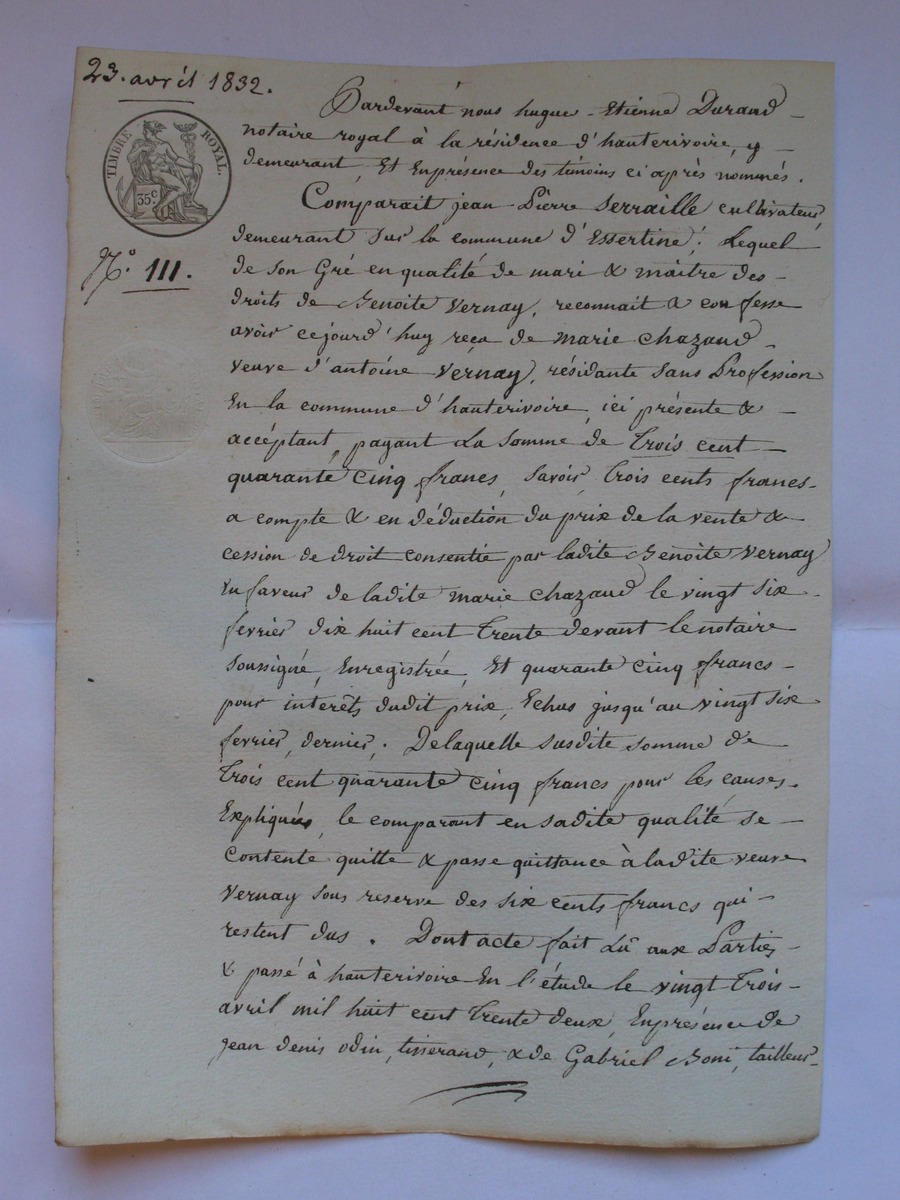 23. avril 1832.
TIMBRE ROYAL.
35c
N.o 111.
Pardevant nous hugue-Etienne Durand
notaire royal à la résidence d'hauterivoire, y
demeurant, Et Enprésence des témoins ci après nommés.
Comparait jean Pierre Serraille cultivateur
demeurant Sur la commune d'Essertine; Lequel
de son Gré en qualité de mari & maitre des
droits de Benoite Vernay, reconnait & confesse
avoir cejourd'huy reçu de marie chazaud
veuve d'antoine Vernay, résidante Sans Profession
En la commune d'hauterivoire, ici présente &
accéptant, payant La Somme de Trois cent
quarante cinq francs, Savoir, Trois cents francs
a compte & en déduction du prix de la vente &
cession de droit consentie par ladite Benoite Vernay
En faveur de ladite marie chazaud le vingt six
fevrier dix huit cent Trente devant le notaire
soussigné, Enregistrée, Et quarante cinq francs
pour interêts dudit prix, Echus jusqu'au vingt six
fevrier, dernier. Delaquelle susdite somme de
Trois cent quarante cinq francs pour les causes
Expliquées, le comparant en sadite qualité se
Contente quitte & passe quittance à ladite veuve
Vernay sous reserve des six cents francs qui
restent dus. Dont acte fait Lû aux Parties
& passé à hauterivoire En l'étude le vingt Trois
avril mil huit cent Trente deux, Enprésence de
jean denis odin, tisserand, & de Gabriel Boni, tailleur